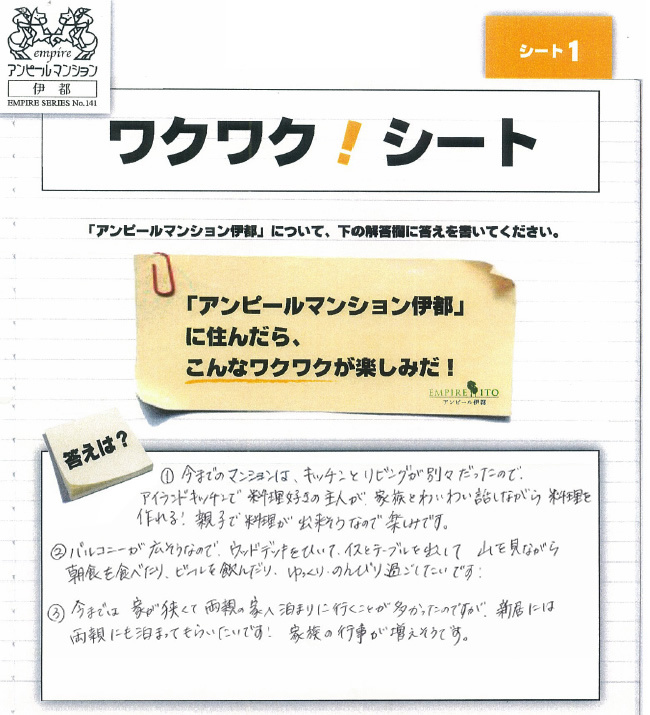 empire
アンピールマンション
伊都
EMPIRE SERIES No.141
シート1
ワクワク!シート
「アンピールマンション伊都」について、下の解答欄に答えを書いてください。
「アンピールマンション伊都」
に住んだら、
こんなワクワクが楽しみだ!
EMPIRE ITO
アンピール伊都
答えは?
① 今までのマンションは、キッチンとリビングが別々だったので、
アイランドキッチンで 料理好きの主人が、家族とわいわい話しながら 料理を
作れる! 親子で料理が 出来そうなので 楽しみです。
② バルコニーが 広そうなので、ウッドデッキをひいて、イスとテーブルを出して 山を見ながら
朝食を食べたり、ビールを飲んだり、ゆっくり・のんびり過ごしたいです!
③ 今までは 家が狭くて 両親の家へ泊まりに行くことが 多かったのですが、新居には
両親にも泊まってもらいたいです! 家族の行事が増えそうです。